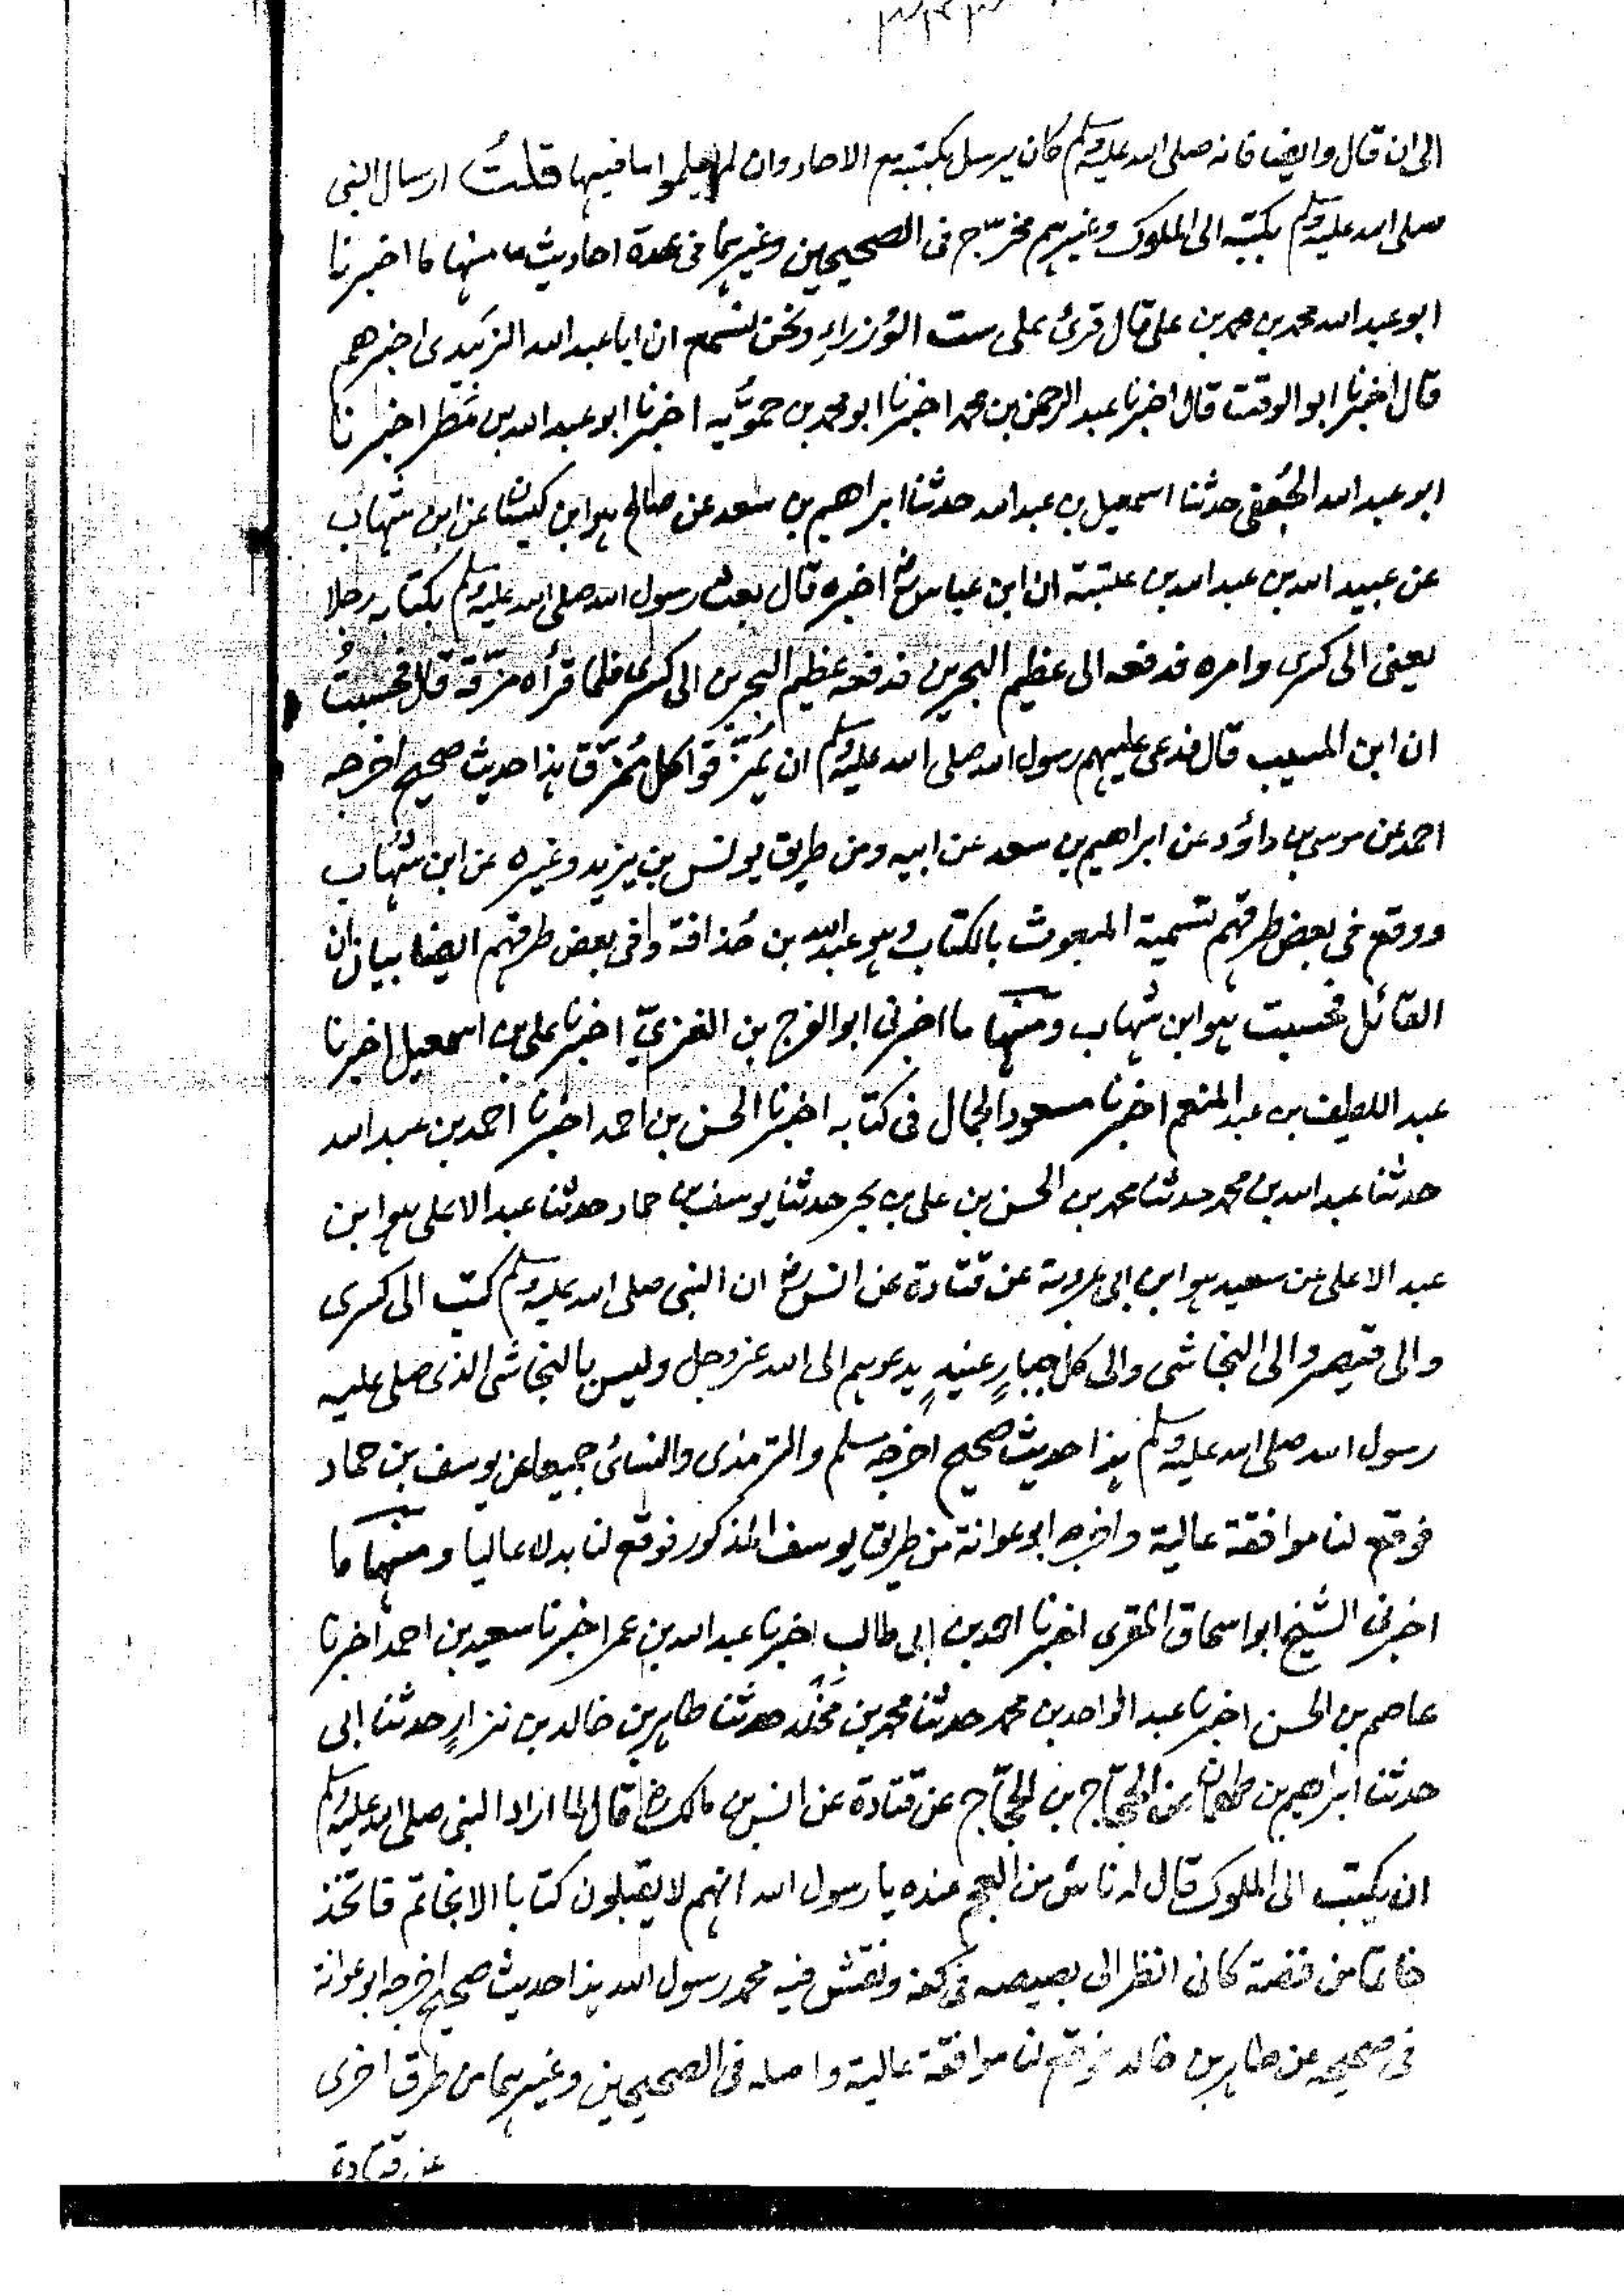 الى ان قال وايضا فانه صلى الله عليه وسلم كان يرسل بكتبه مع الاحاد وان لم يعلموا ما فيها قلتُ ارسال النبى
صلى الله عليه وسلم بكتبه الى الملوك وغيرهم مخرّج فى الصحيحين وغيرهما فى عدة احاديث منها ما اخبرنا
ابو عبد الله محمد بن محمد بن على قال قرئ على ست الوُزراء ونحن نسمع ان ابا عبد الله الزبيدى اخبرهم
قال اخبرنا ابو الوقت قال اخبرنا عبد الرحمن بن محمد اخبرنا ابو محمد بن حمُّويه اخبرنا ابو عبد الله بن مَطر اخبرنا
ابو عبد الله الجُعفى حدثنا اسمعيل بن عبد الله حدثنا ابراهيم بن سعد عن صالح هو ابن كيسان عن ابن شهاب
عن عبيد الله بن عبد الله بن عتبة ان ابن عباس رض اخبره قال بعث رسول الله صلى الله عليه وسلم بكتابه رجلا
يعنى الى كسرى وامره فدفعه الى عظيم البحرين فدفعه عظيم البحرين الى كسرى فلما قرأه مزّقه قال فحسبتُ
ان ابن المسيب قال فدعى عليهم رسول الله صلى الله عليه وسلم ان يُمزّقوا كل مُمزّق هذا حديث صحيح اخرجه
احمد عن موسى بن داؤد عن ابراهيم بن سعد عن ابيه ومن طريق يونس بن يزيد وغيره عن ابن شهاب
ووقع فى بعض طرقهم تسمية المبعوث بالكتاب وهو عبد الله بن حُذافة وفى بعض طرقهم ايضا بيان ان
القائل فحسبت هو ابن شهاب ومنها ما اخبرنى ابو الفرج بن الغزىّ اخبرنا على بن اسمعيل اخبرنا
عبد اللطيف بن عبد المنعم اخبرنا مسعود الجمال فى كتابه اخبرنا الحسن بن احمد اخبرنا احمد بن عبد الله
حدثنا عبد الله بن محمد حدثنا محمد بن الحسن بن على بن بحر حدثنا يوسف بن حماد حدثنا عبد الاعلى هو ابن
عبد الاعلى عن سعيد هو ابن ابى عروبة عن قتادة عن انس رض ان النبى صلى الله عليه وسلم كتب الى كسرى
والى قيصر والى النجاشى والى كل جبارٍ عنيدٍ يدعوهم الى الله عز وجل وليس بالنجاشى الذى صلى عليه
رسول الله صلى الله عليه وسلم هذا حديث صحيح اخرجه مسلم والترمذى والنسائى جميعا عن يوسف بن حماد
فوقع لنا موافقة عالية واخرجه ابو عوانة من طريق يوسف المذكور فوقع لنا بدلا عاليا ومنها ما
اخبرنى الشيخ ابو اسحاق المقرى اخبرنا احمد بن ابى طالب اخبرنا عبد الله بن عمر اخبرنا سعيد بن احمد اخبرنا
عاصم بن الحسن اخبرنا عبد الواحد بن محمد حدثنا محمد بن مَخْلَد حدثنا طاهر بن خالد بن نزارٍ حدثنا ابى
حدثنا ابراهيم بن طهمان عن الحجّاج بن الحجّاج عن قتادة عن انس بن مالك رض قال لما اراد النبى صلى الله عليه وسلم
ان يكتب الى الملوك قال له ناس من العجم عنده يا رسول الله انهم لا يقبلون كتابا الا بخاتم فاتخذ
خاتما من فضة كانى انظر الى بصيصه فى كفه ونقش فيه محمد رسول الله هذا حديث صحيح اخرجه ابو عوانة
فى صحيحه عن طاهر بن خالد فوقع لنا موافقة عالية واصله فى الصحيحين وغيرهما من طرق اخرى
عن قتادة